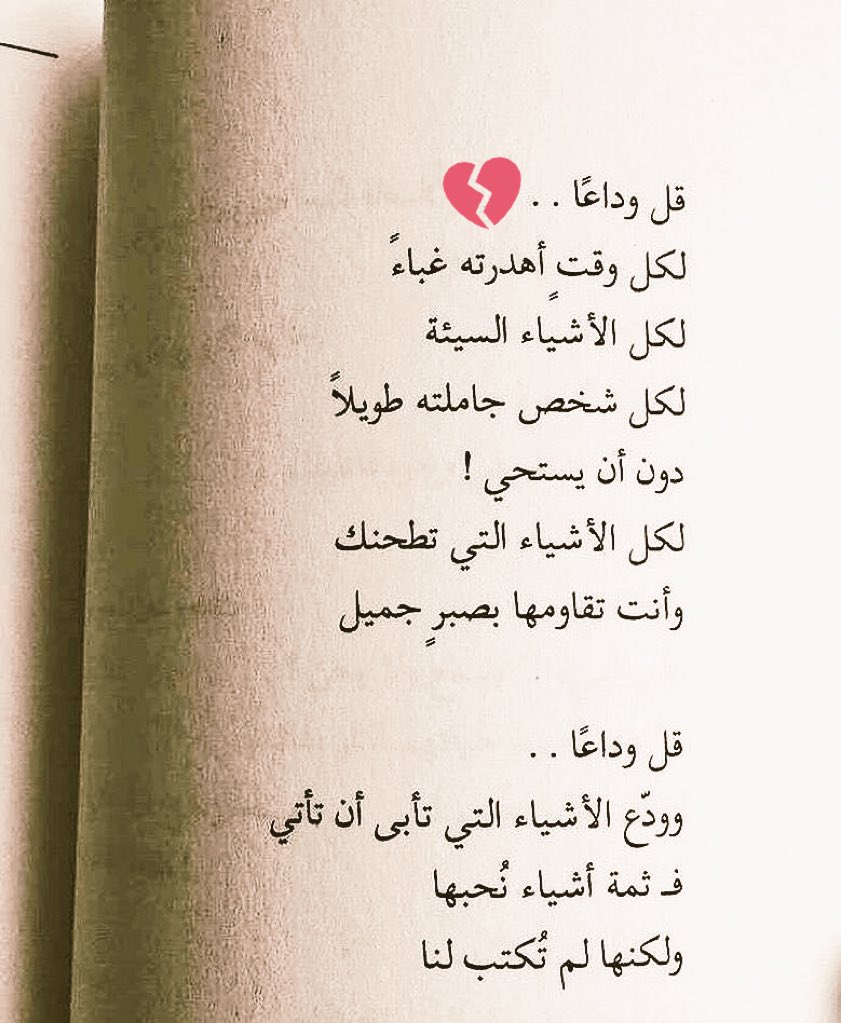 قل وداعًا . . 💔
لكل وقتٍ أهدرته غباءً
لكل الأشياء السيئة
لكل شخص جاملته طويلاً
دون أن يستحي !
لكل الأشياء التي تطحنك
وأنت تقاومها بصبرٍ جميل
قل وداعًا . .
وودّع الأشياء التي تأبى أن تأتي
فـ ثمة أشياء نُحبها
ولكنها لم تُكتب لنا